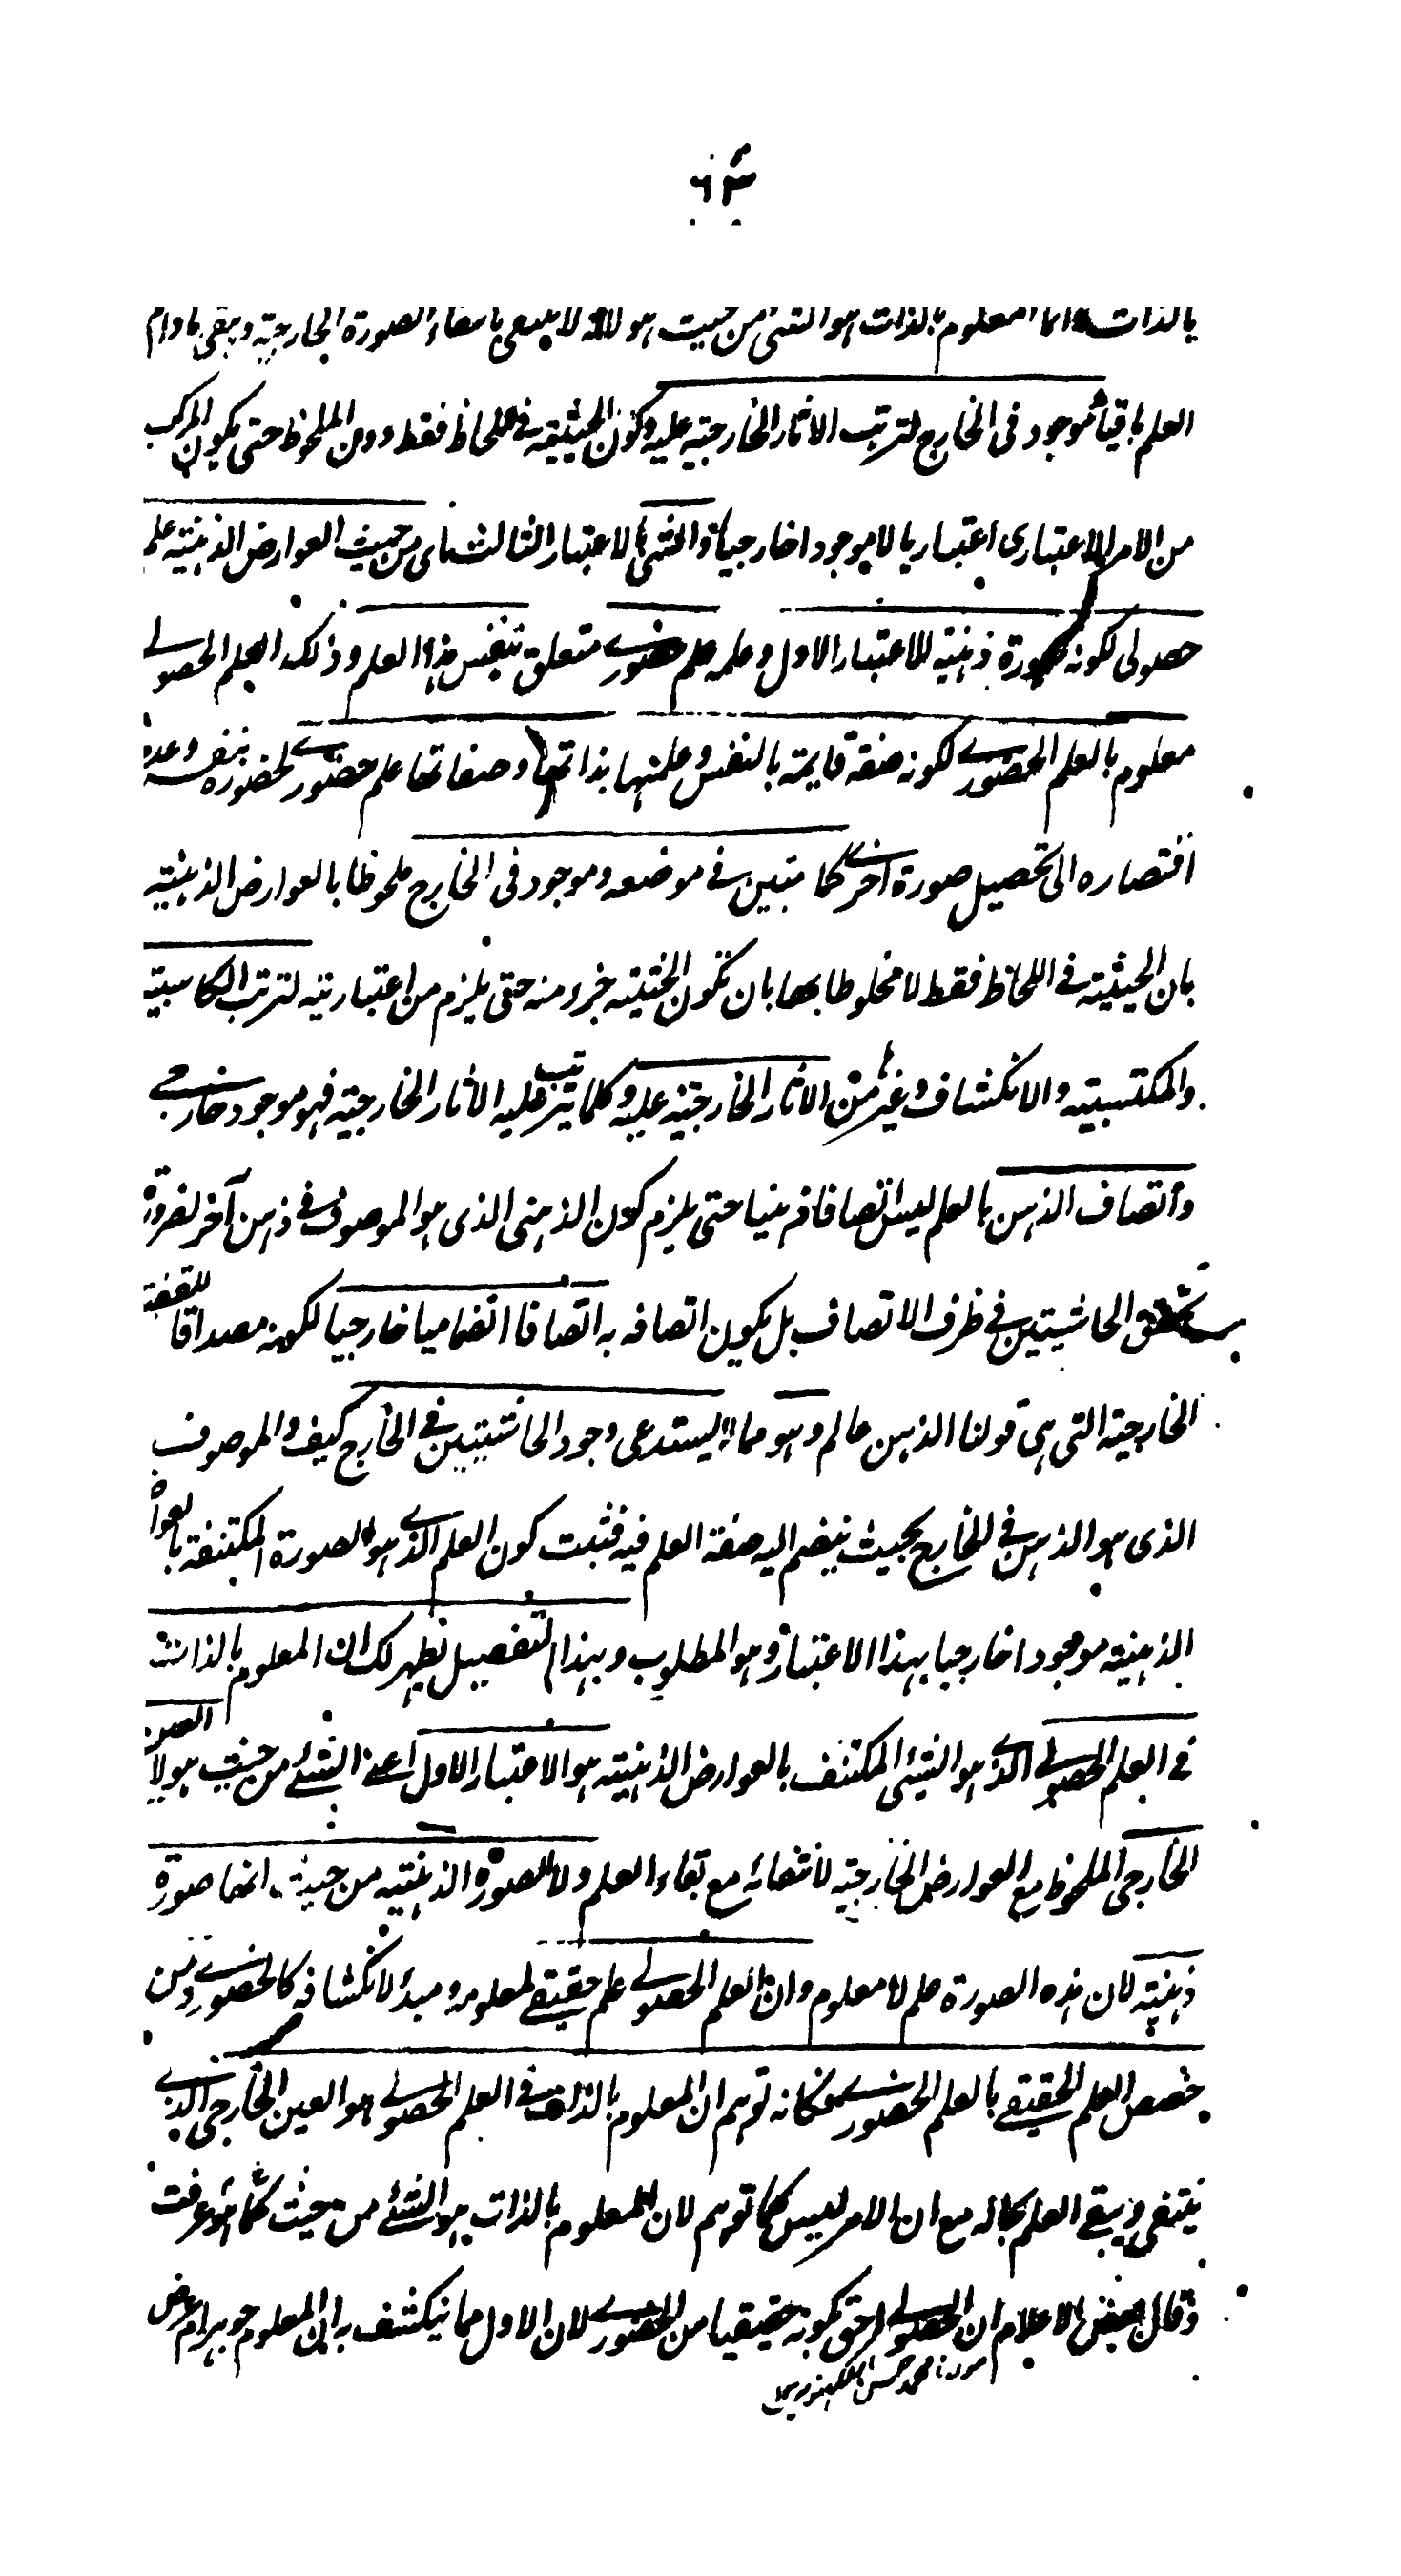 ٦٣
بالذات وانما المعلوم بالذات هو الشئ من حيث هو لانه لا ينتفى بانتفاء الصورة الخارجية ويبقى مادام
العلم باقيا موجود فى الخارج لترتب الاثار الخارجية عليه وكون الحيثية فى اللحاظ فقط دون الملحوظ حتى يكون المركب
من الامر الاعتبارى اعتباريا لا موجودا خارجيا والشئ بالاعتبار الثالث اى من حيث العوارض الذهنية علم
حصولى لكونه صورة ذهنية للاعتبار الاول وعلمه علم حضورى متعلق بنفس هذا العلم وذلك العلم الحصولى
معلوم بالعلم الحضورى لكونه صفة قايمة بالنفس وعلمها بذاتها وصفاتها علم حضورى لحضوره بنفسه وعدم
افتقاره الى تحصيل صورة اخرى كما تبين فى موضعه وموجود فى الخارج ملحوظا بالعوارض الذهنية
بان الحيثية فى اللحاظ فقط لا مخلوطا بها بان تكون الحيثية جزء منه حتى يلزم من اعتباريته لترتب الكاسبية
والمكتسبية والانكشاف وغيرها من الاثار الخارجية عليه وكلما يترتب عليه الاثار الخارجية فهو موجود خارجى
واتصاف الذهن بالعلم ليس اتصافا ذهنيا حتى يلزم كون الذهنى الذى هو الموصوف فى ذهن آخر لضرورة
تحقق الحاشيتين فى ظرف الاتصاف بل يكون اتصافه به اتصافا انضماميا خارجيا لكونه مصداقا للقضية
الخارجية التى هى قولنا الذهن عالم وهو مما يستدعى وجود الحاشيتين فى الخارج كيف والموصوف
الذى هو الذهن فى الخارج بحيث ينضم اليه صفة العلم فيه فثبت كون العلم الذى هو الصورة المكتنفة بالعوارض
الذهنية موجودا خارجيا بهذا الاعتبار وهو المطلوب وبهذا التفصيل يظهر لك ان المعلوم بالذات
فى العلم الحصولى الذى هو الشئ المكتنف بالعوارض الذهنية هو الاعتبار الاول اعنى الشئ من حيث هو لا العين
الخارجى الملحوظ مع العوارض الخارجية لانتفائه مع بقاء العلم ولا الصورة الذهنية من حيث انها صورة
ذهنية لان هذه الصورة علم لا معلوم وان العلم الحصولى علم حقيقى لمعلومه ومبدأ لانكشافه كالحضورى ومن
خصص العلم الحقيقى بالعلم الحضورى فكانه توهم ان المعلوم بالذات فى العلم الحصولى هو العين الخارجى الذى
ينتفى ويبقى العلم بحاله مع ان الامر ليس كما توهم لان المعلوم بالذات هو الشئ من حيث هو كما عرفت
وقال بعض الاعلام ان الحصولى احق بكونه حقيقيا من الحضورى لان الاول مما ينكشف به ان المعلوم جوهر ام عرض
محمد حسن